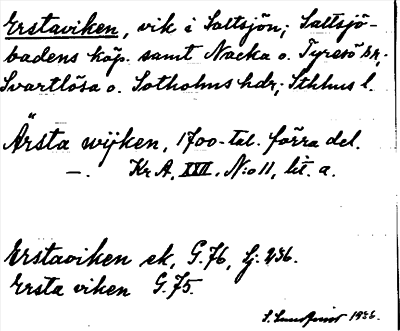 Erstaviken, vik i Saltsjön; Saltsjö-
badens köp. samt Nacka o. Tyresö snr,
Svartlösa o. Sotholms hdr; Sthlms l.
Ärsta wijken, 1700-tal. förra del.
—. Kr A, XXII, N:o 11, lit. a.
Erstaviken ek, G.76, Lj. 236.
Ersta viken G.75.
S. Lundqvist 1936.